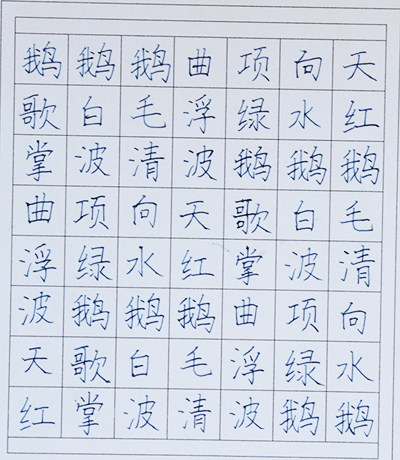 鹅鹅鹅曲项向天
歌白毛浮绿水红
掌波清波鹅鹅鹅
曲项向天歌白毛
浮绿水红掌波清
波鹅鹅鹅曲项向
天歌白毛浮绿水
红掌波清波鹅鹅